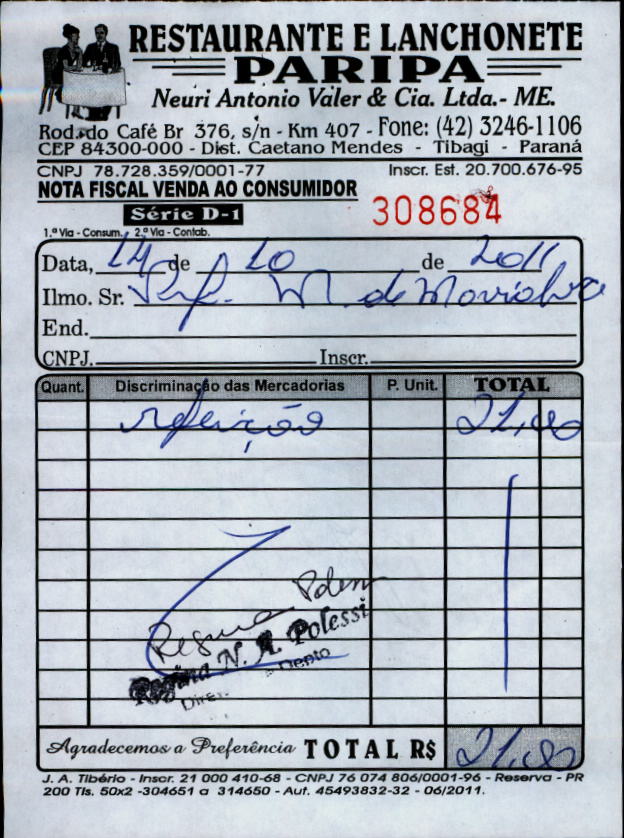 RESTAURANTE E LANCHONETE
PARIPA
Neuri Antonio Valer & Cia. Ltda.- ME.
Rod. do Café Br 376, s/n - Km 407 - Fone: (42) 3246-1106
CEP 84300-000 - Dist. Caetano Mendes - Tibagi - Paraná
CNPJ 78.728.359/0001-77 Inscr. Est. 20.700.676-95
NOTA FISCAL VENDA AO CONSUMIDOR
Série D-1 308684
1.ª Via - Consum. 2.ª Via - Contab.
Data, 14 de 10 de 2011
Ilmo. Sr. Pref. M. de
End.
CNPJ. Inscr.
Quant. Discriminação das Mercadorias P. Unit. TOTAL
refeição 21,00
Regina Polessi
Regina N. R. Polessi
Depto
Agradecemos a Preferência TOTAL R$ 21,00
J. A. Tibério - Inscr. 21 000 410-68 - CNPJ 76 074 806/0001-96 - Reserva - PR
200 Tls. 50x2 -304651 a 314650 - Aut. 45493832-32 - 06/2011.